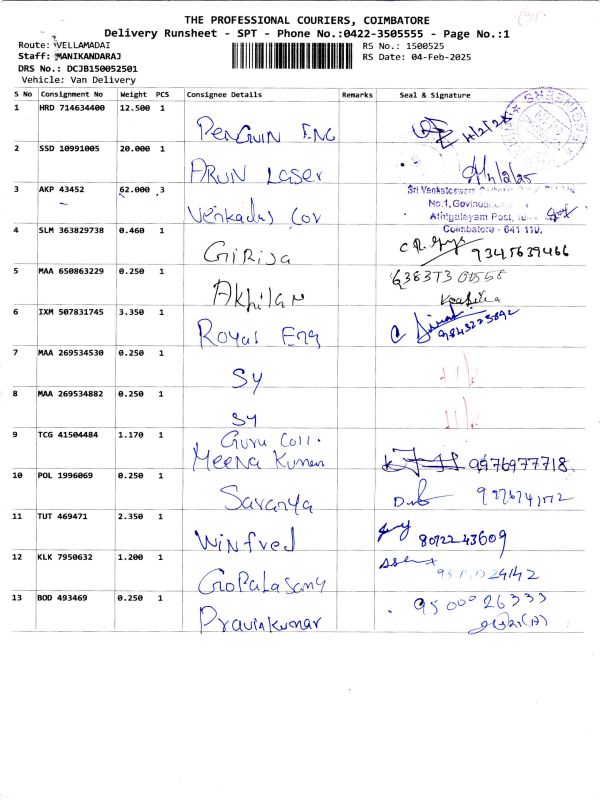 THE PROFESSIONAL COURIERS, COIMBATORE
Delivery Runsheet - SPT - Phone No.:0422-3505555 - Page No.:1
Route: VELLAMADAI RS No.: 1500525
Staff: MANIKANDARAJ RS Date: 04-Feb-2025
DRS No.: DCJB150052501
Vehicle: Van Delivery
S No Consignment No Weight PCS Consignee Details Remarks Seal & Signature
1 HRD 714634400 12.500 1 Penguin Eng
2 SSD 10991005 20.000 1 Arun Laser
3 AKP 43452 62.000 3 Venkadus Cov
Sri Venkateswara
No.1, Govindar
Athipalayam Post,
Coimbatore - 641 110.
4 SLM 363829738 0.460 1 Girija 9345639466
5 MAA 650863229 0.250 1 Akhilan
6 IXM 507831745 3.350 1 Royal Eng
7 MAA 269534530 0.250 1 SY
8 MAA 269534882 0.250 1 SY
9 TCG 41504484 1.170 1 Guru Coll. Meena Kumari 9976977718
10 POL 1996069 0.250 1 Saranya
11 TUT 469471 2.350 1 Winfred 8072243609
12 KLK 7950632 1.200 1 Gopalasamy
13 BOD 493469 0.250 1 Pravinkumar 9500026333